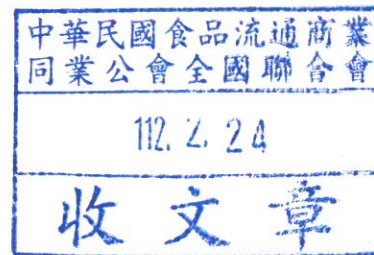 中華民國食品流通商業
同業公會全國聯合會
112. 2. 24
收文章